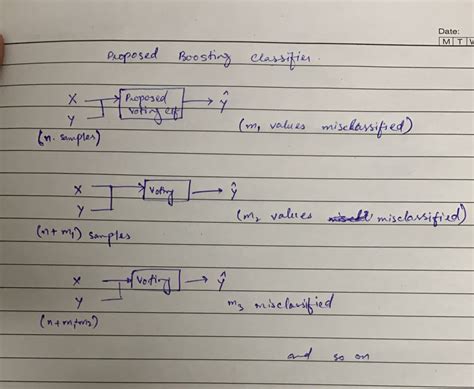 Date:
M T W
Proposed Boosting Classifier.
X
Y
Proposed
Voting clf
Ŷ
(n. samples)
(m₁ values misclassified)
X
Y
Voting
Ŷ
(n + m₁) samples
(m₂ values misclassified)
X
Y
Voting
Ŷ
(n+m₁+m₂)
m₃ misclassified
and so on